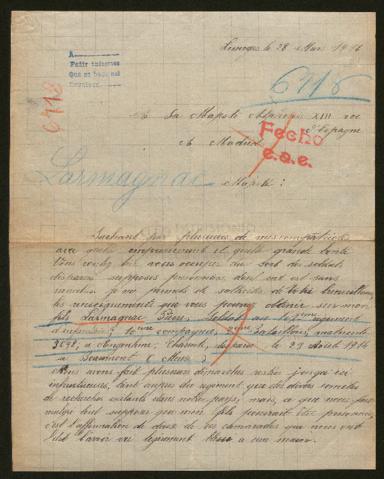 Limoges le 28 Mai 1916
A
Pedir informes
Que se haga
6418
6418
A Sa Majesté Alphonse XIII roi
d'Espagne
A Madrid
Fecho
e.a.e.
Larmagnac
Majesté :
Sachant par plusieurs de mes compatriotes
avec quelle empressement et quelle grande bonté
vous vous occuper au sort des soldats
disparus supposés prisonniers dont on est sans
je me permets de solliciter de votre bienveillance
les renseignements que vous pouvez obtenir sur mon
fils Larmagnac Pierre, Soldat au régiment
d'infanterie, compagnie, Bataillon, matricule
à Angoulême, Charente, disparu le 29 Août 1914
à Beaumont (Meuse)
Nous avons fait plusieurs démarches restées jusqu'ici
infructueuses, tant auprès du régiment que des divers comités
de recherches existants dans notre pays, mais, ce qui nous fait
malgré tout supposer que mon fils pourrait être prisonnier,
c'est l'affirmation de deux de ses camarades qui nous ont
dit l'avoir vu légèrement blessé à une main.